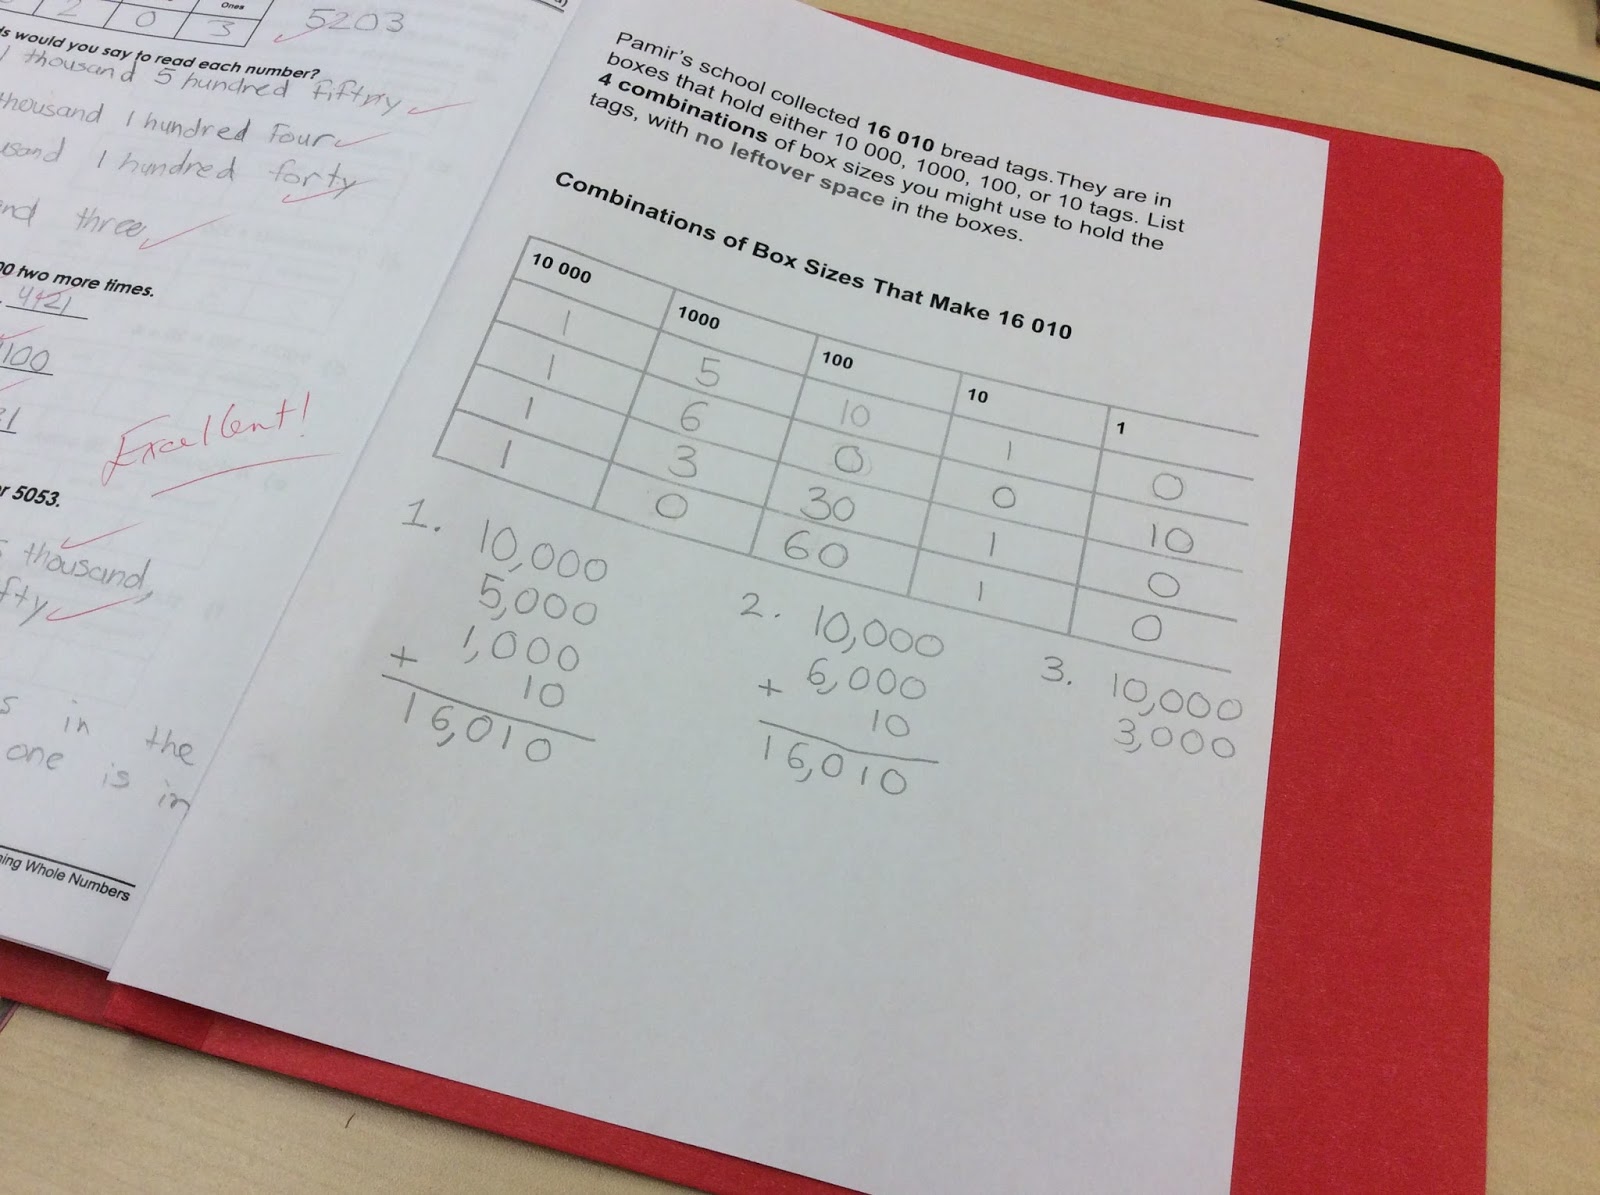 Ones
2 0 3
5203
ds would you say to read each number?
thousand 5 hundred fiftry
thousand 1 hundred Four
usand 1 hundred forty
nd three
00 two more times.
4421
100
Excellent!
or 5053.
thousand,
fty
s in the
one is in
ning Whole Numbers
Pamir's school collected 16 010 bread tags. They are in
boxes that hold either 10 000, 1000, 100, or 10 tags. List
4 combinations of box sizes you might use to hold the
tags, with no leftover space in the boxes.
Combinations of Box Sizes That Make 16 010
10 000 1000 100 10 1
1 5 10 1 0
1 6 0 0 10
1 3 30 1 0
1 0 60 1 0
1. 10,000
5,000
1,000
+ 10
16,010
2. 10,000
6,000
+ 10
16,010
3. 10,000
3,000